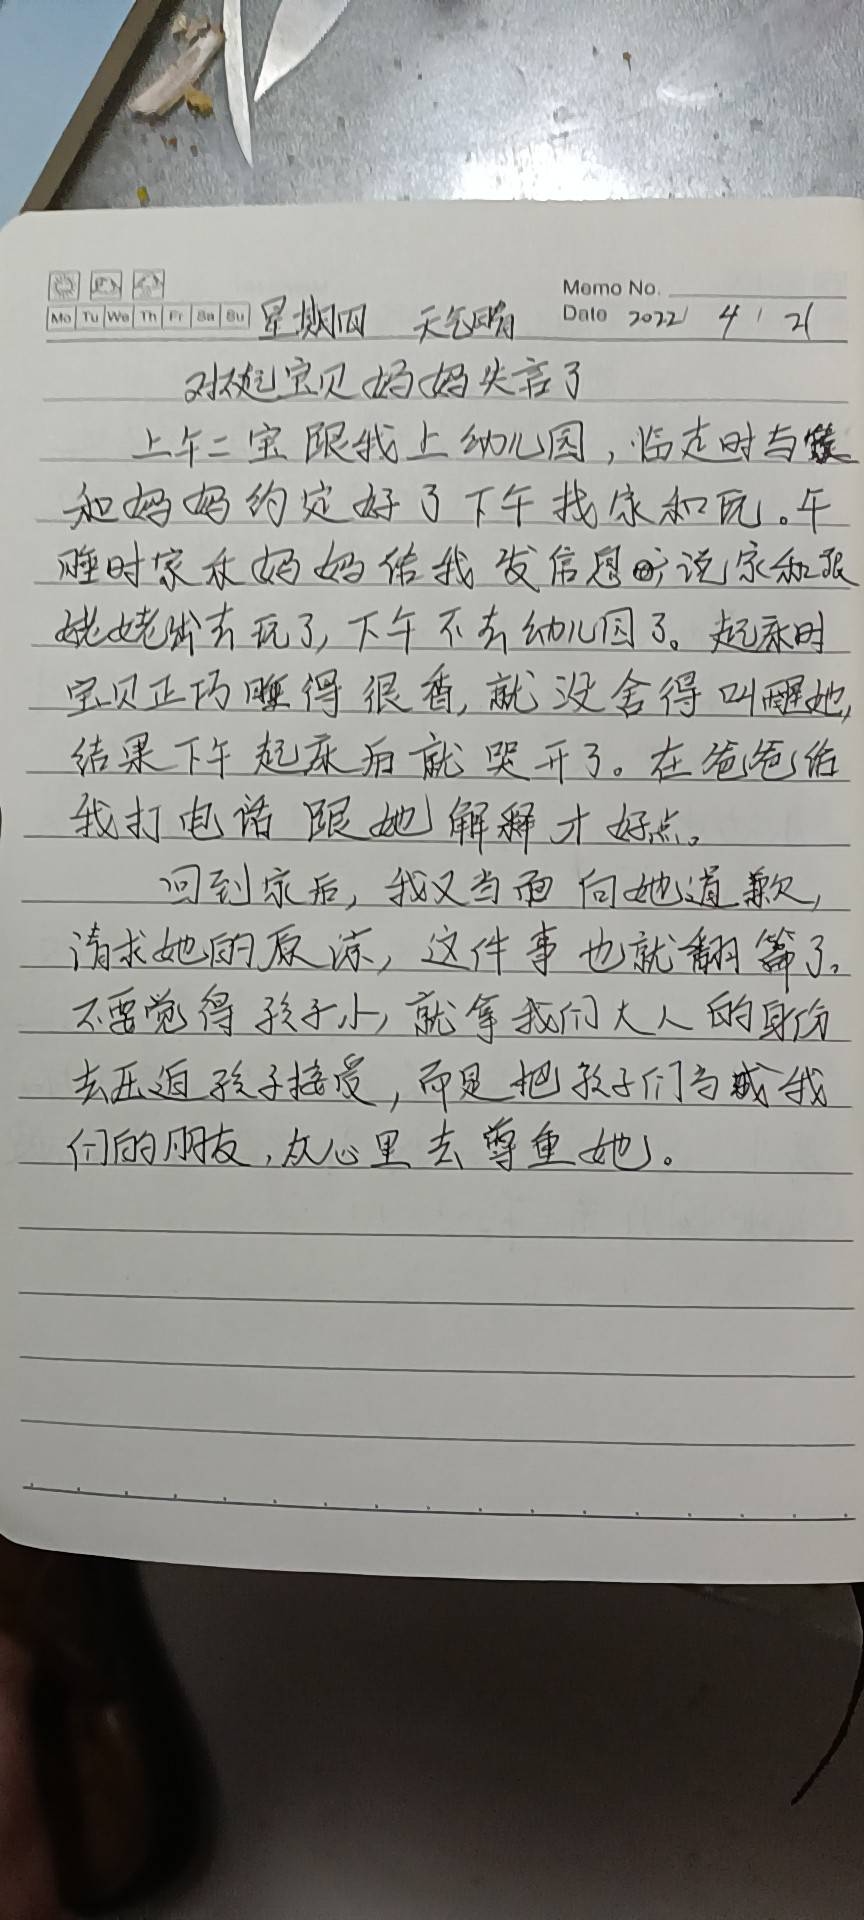 Memo No.
Mo Tu We Th Fr Sa Su 星期四 天气晴 Date 2022 / 4 / 21
对不起宝贝妈妈失言了
上午二宝跟我上幼儿园，临走时与家
和妈妈约定好了下午找家和玩。午
睡时家禾妈妈给我发信息说家和跟
姥姥出去玩了，下午不去幼儿园了。起床时
宝贝正巧睡得很香，就没舍得叫醒她，
结果下午起床后就哭开了。在爸爸给
我打电话跟她解释才好点。
回到家后，我又当面向她道歉，
请求她的原谅，这件事也就翻篇了。
不要觉得孩子小，就拿我们大人的身份
去压迫孩子接受，而是把孩子们当成我
们的朋友，从心里去尊重她。